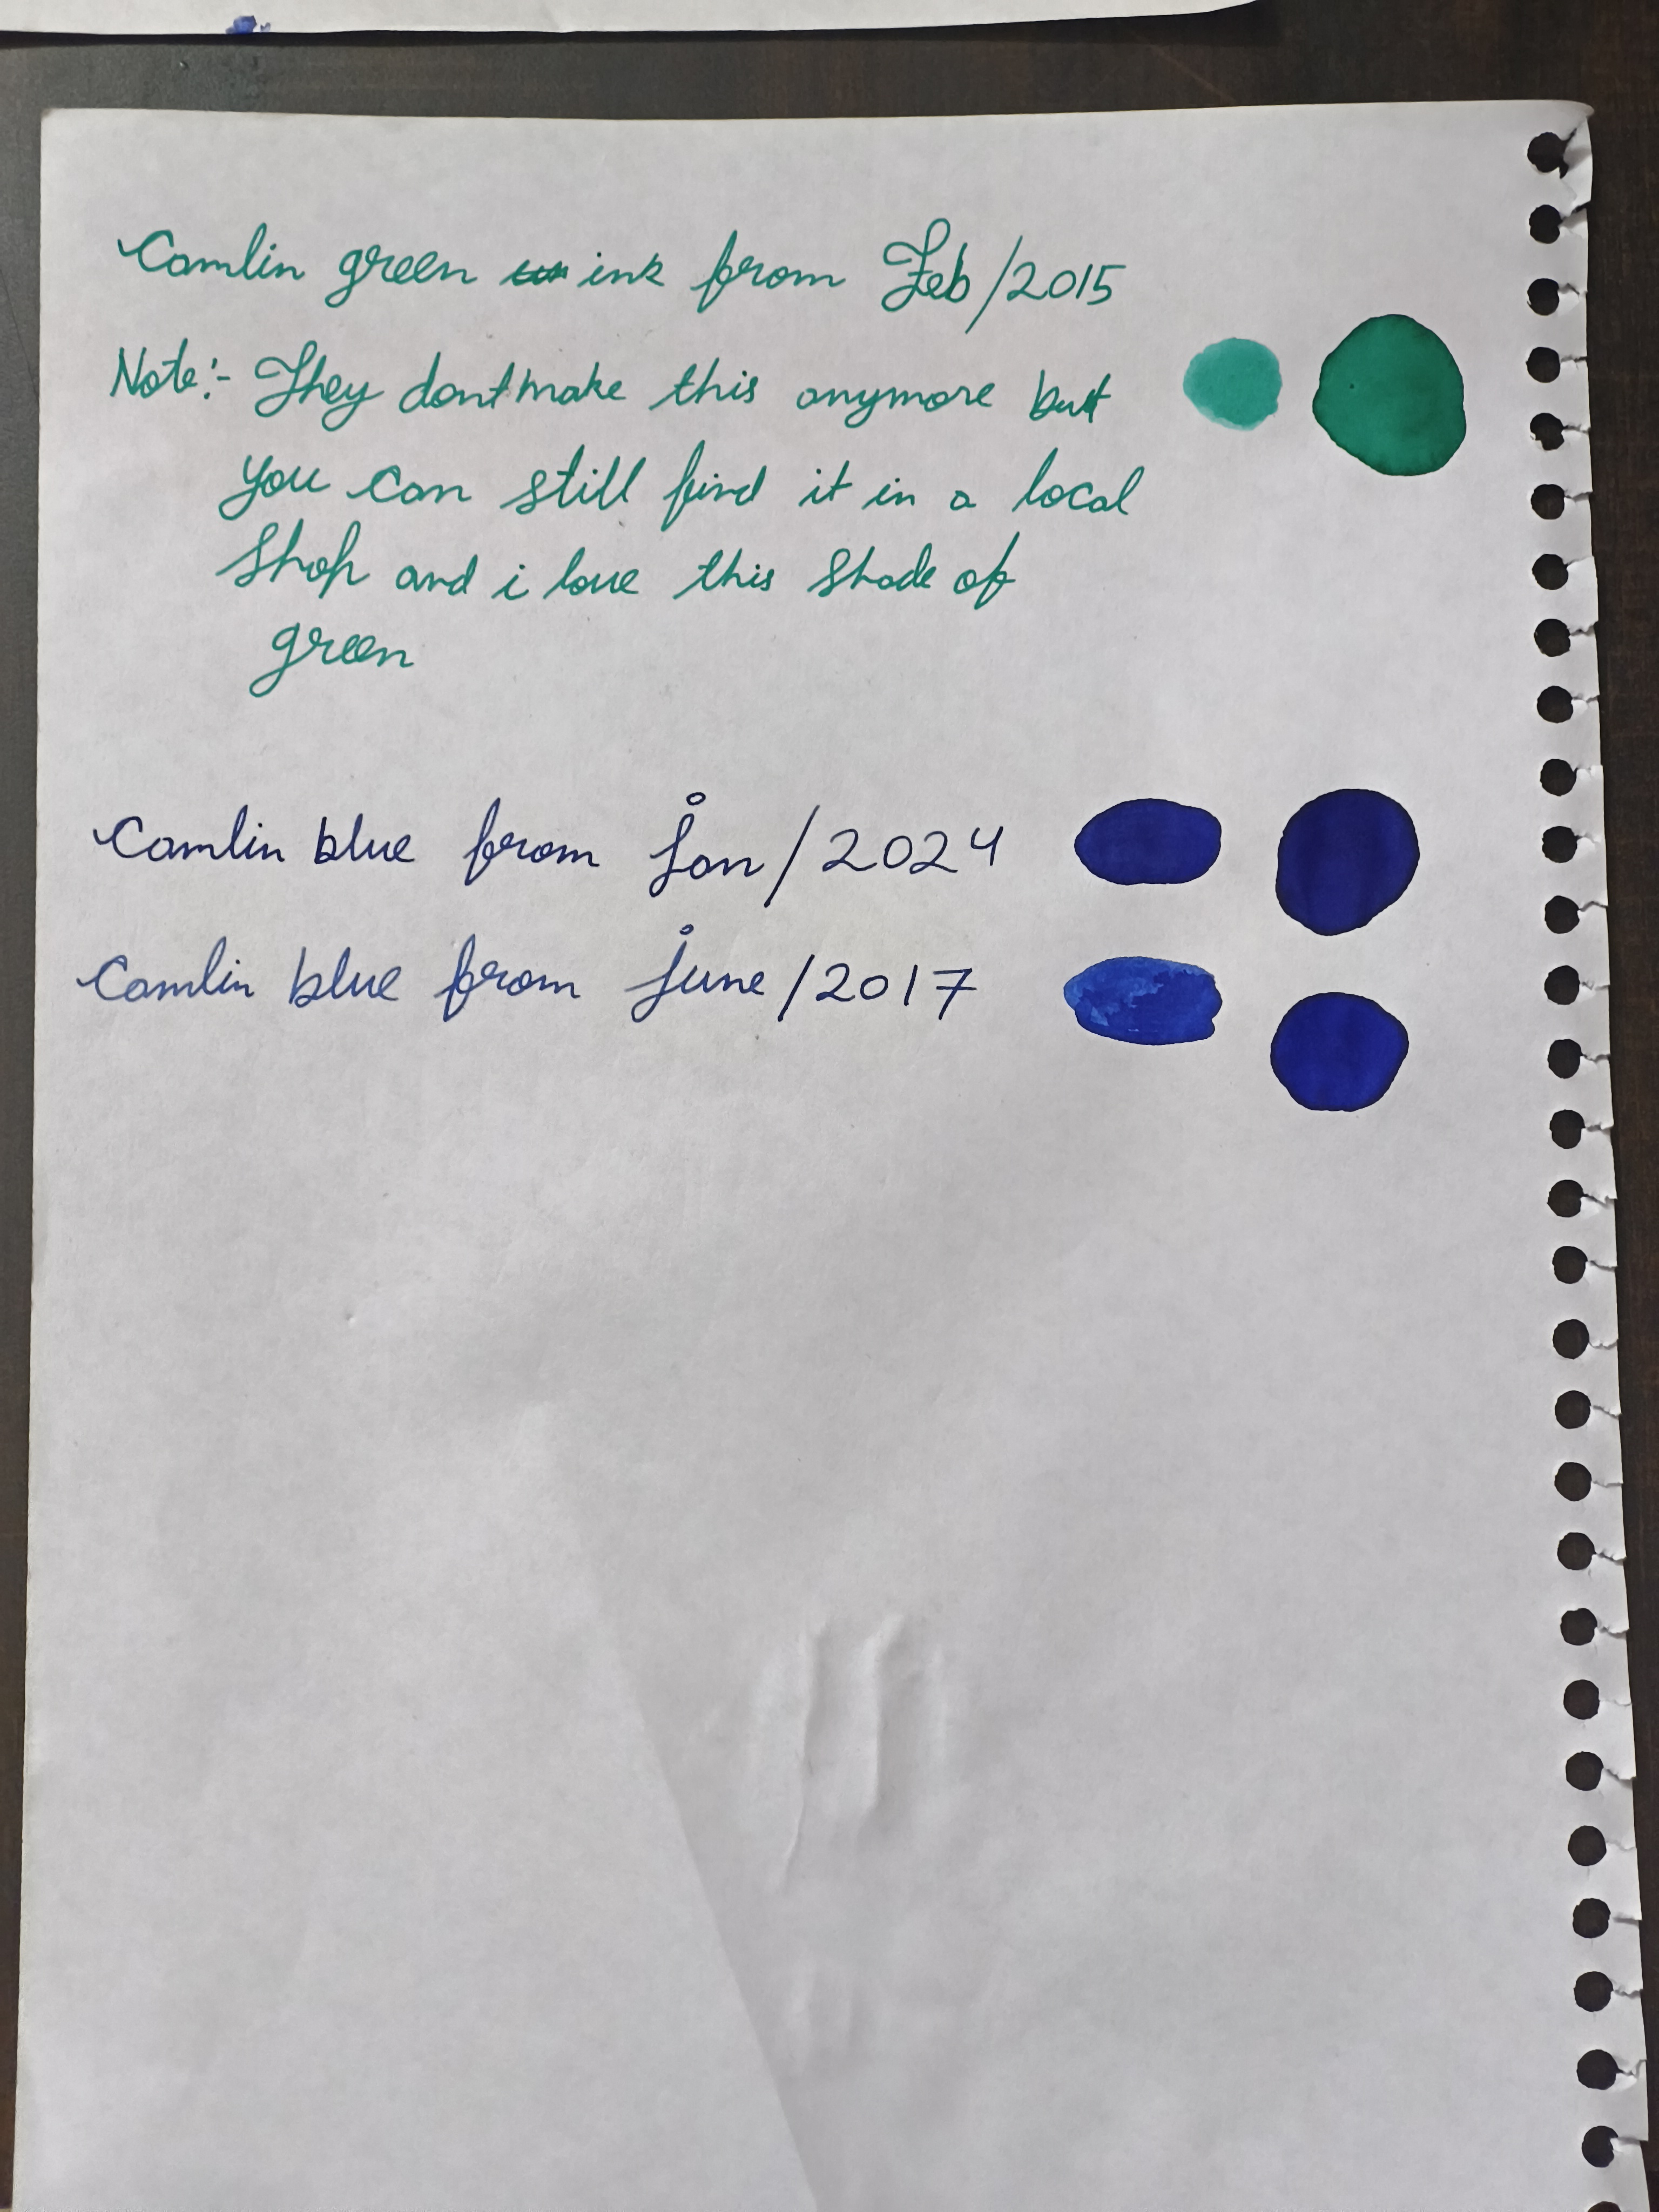 Camlin green ink from Feb/2015
Note:- They dont make this anymore but
you can still find it in a local
shop and i love this shade of
green
Camlin blue from Jan/2024
Camlin blue from June/2017